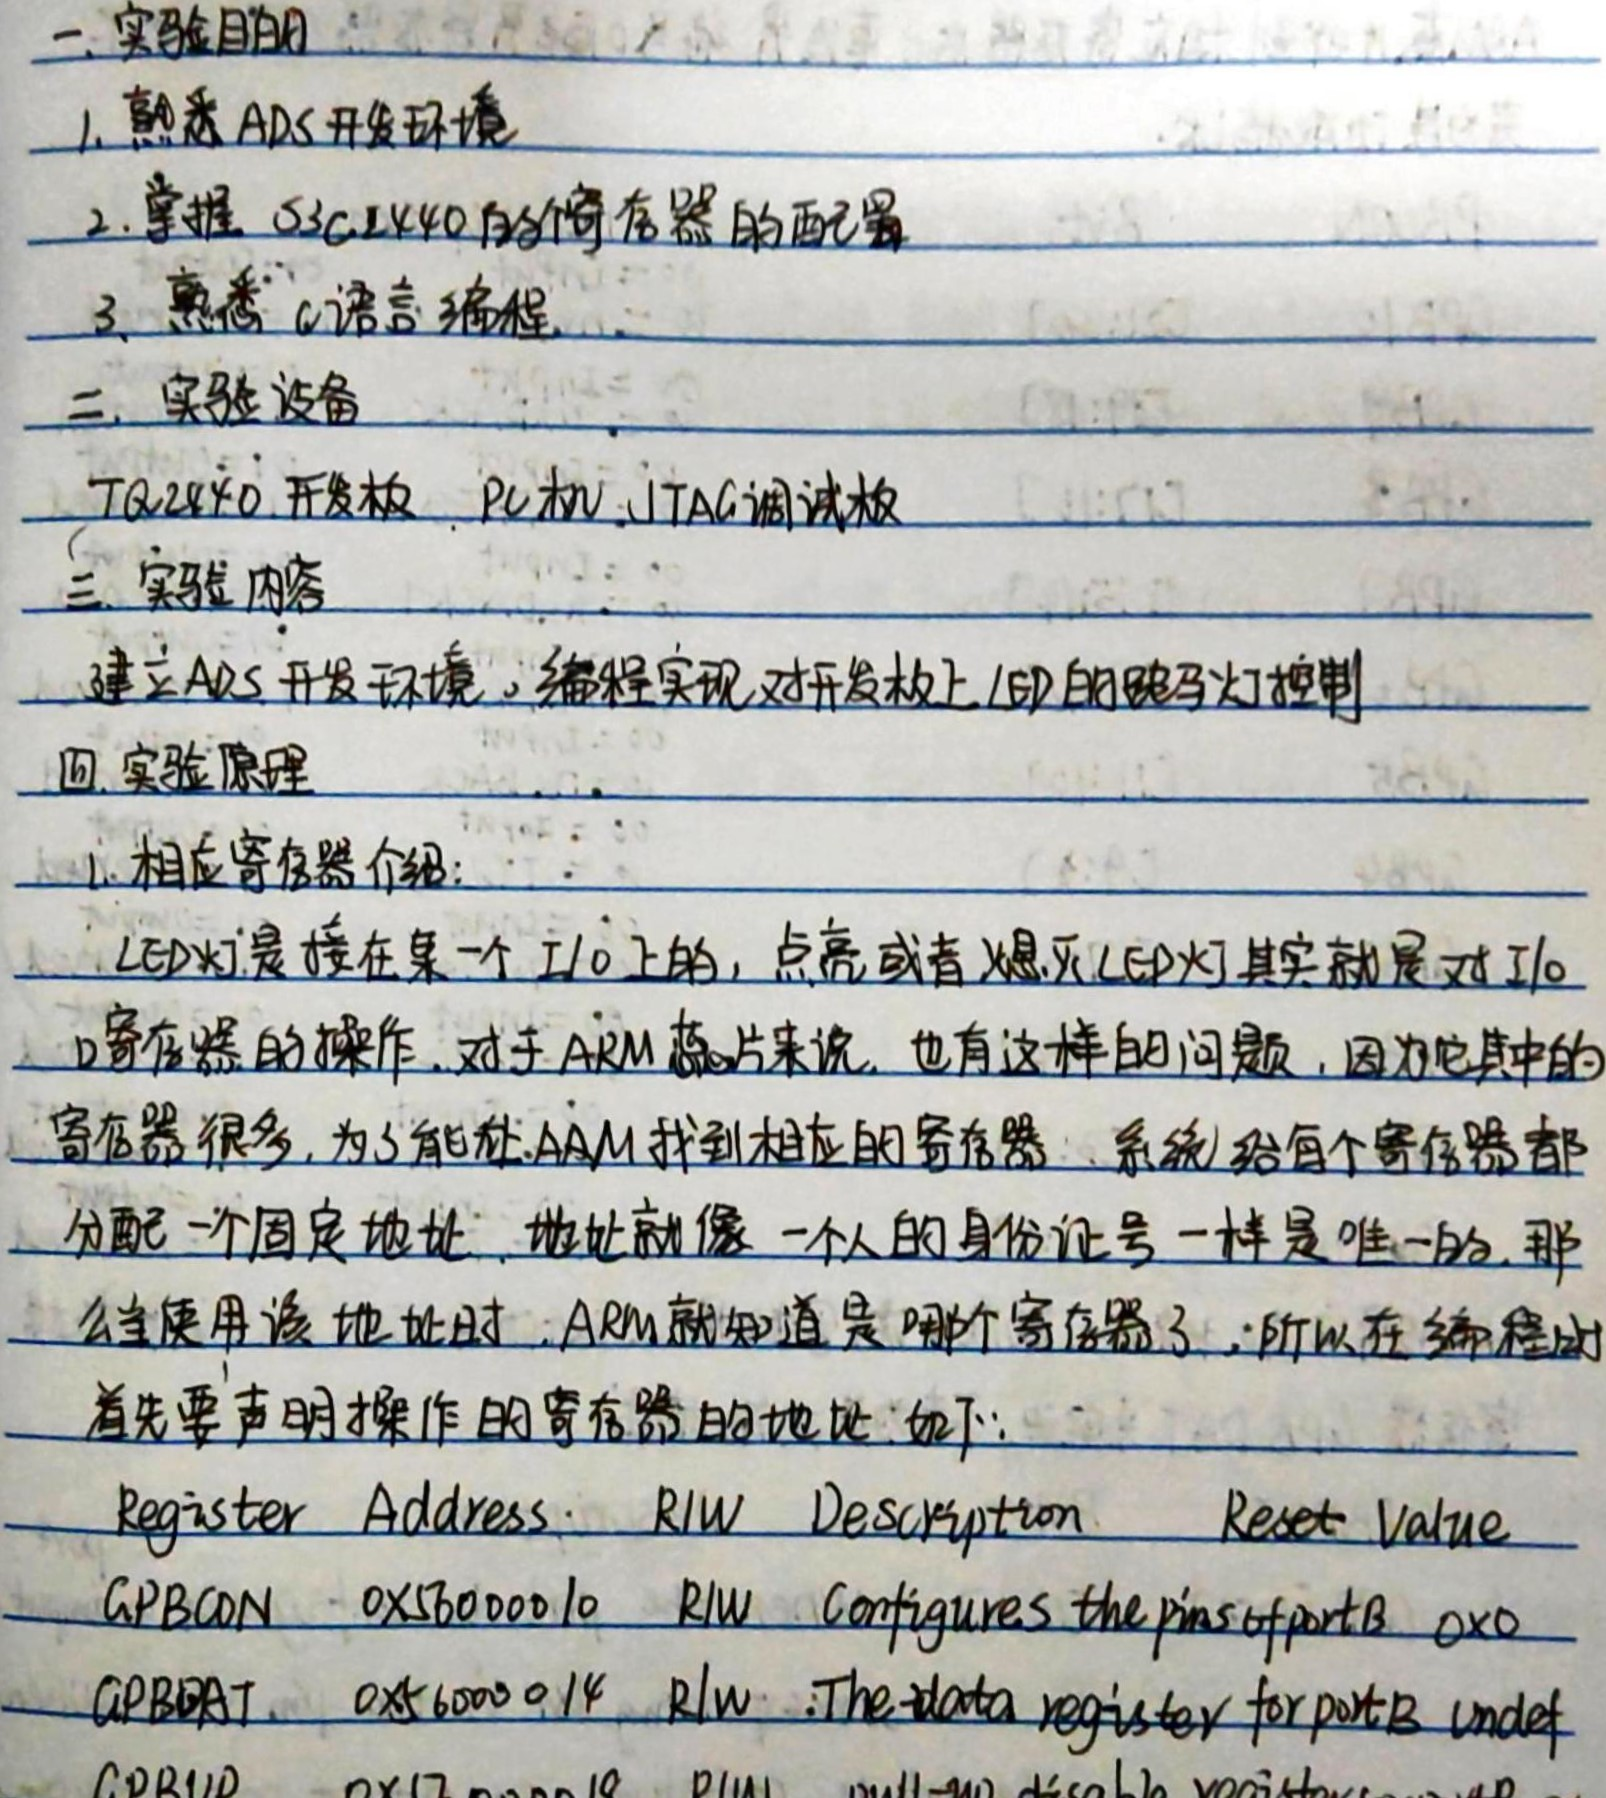 一. 实验目的
1. 熟悉ADS开发环境
2. 掌握 S3C2440的寄存器的配置
3. 熟悉 C语言编程.
二. 实验设备
TQ2440 开发板 PC机 JTAG调试板
三. 实验内容
建立ADS开发环境。编程实现对开发板上LED的跑马灯控制
四. 实验原理
1. 相应寄存器介绍:
LED灯是接在某一个 I/O 上的, 点亮或者熄灭LED灯其实就是对I/O
口寄存器的操作. 对于ARM芯片来说. 也有这样的问题, 因为它其中的
寄存器很多, 为了能让ARM找到相应的寄存器. 系统给每个寄存器都
分配一个固定地址. 地址就像一个人的身份证号一样是唯一的. 那
么当使用该地址时. ARM就知道是哪个寄存器了. 所以在编程时
首先要声明操作的寄存器的地址: 如下:
Register Address R/W Description Reset Value
GPBCON 0X56000010 R/W Configures the pins of port B 0x0
GPBDAT 0x56000014 R/W The data register for port B undef
GPBUP R/W pull-up disable register